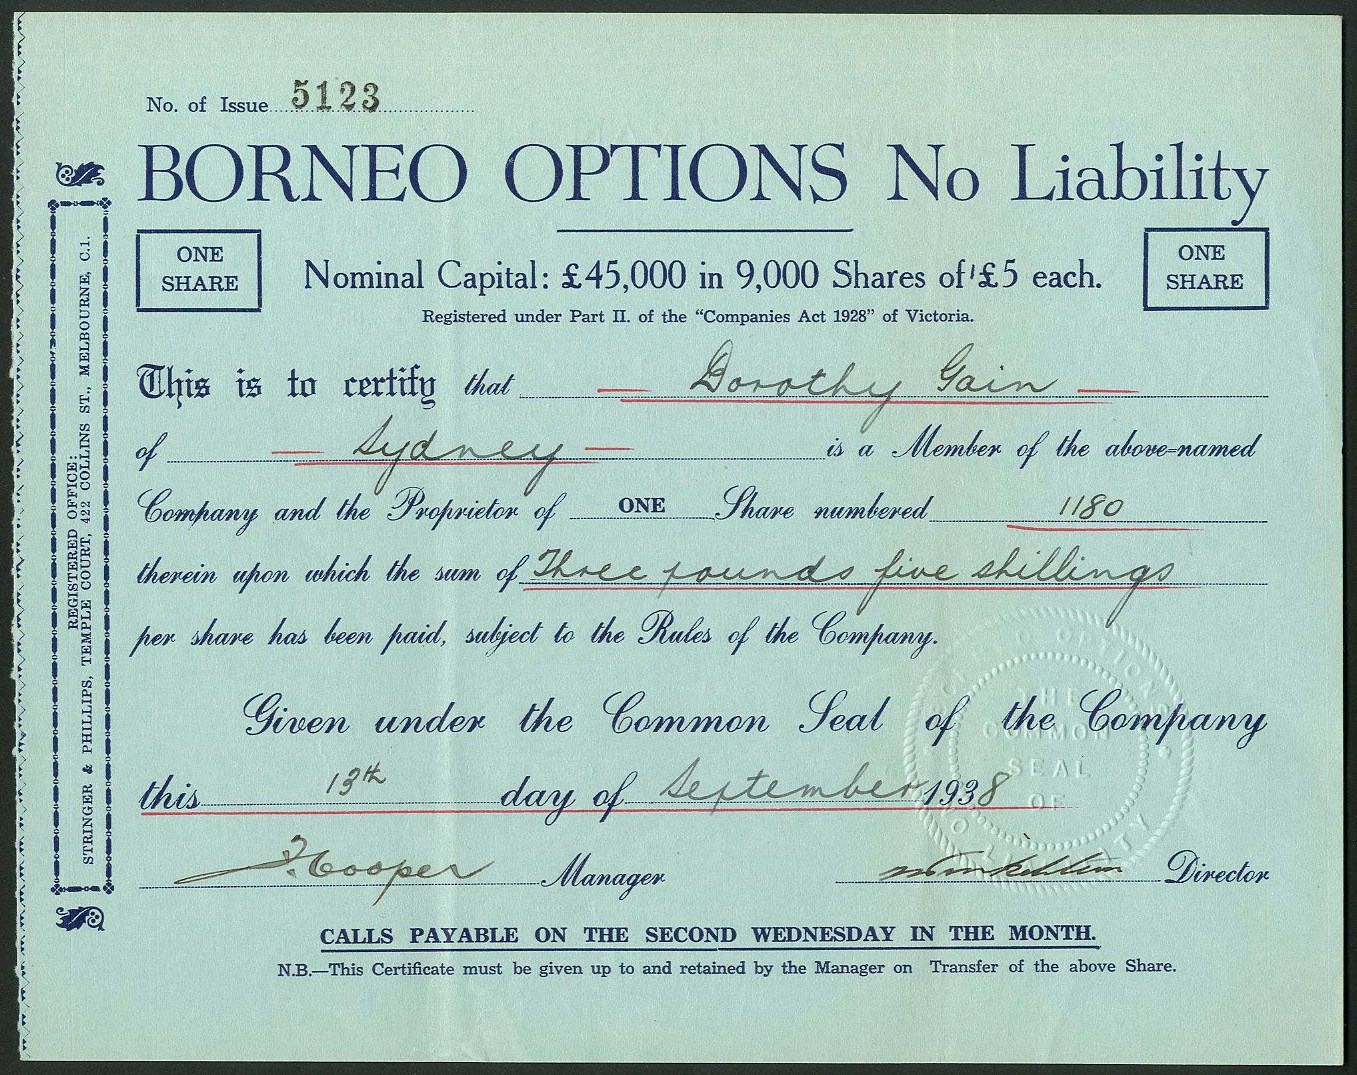 No. of Issue 5123
BORNEO OPTIONS No Liability
ONE
SHARE
Nominal Capital: £45,000 in 9,000 Shares of £5 each.
ONE
SHARE
Registered under Part II. of the “Companies Act 1928” of Victoria.
This is to certify that — Dorothy Gain —
of — Sydney — is a Member of the above-named
Company and the Proprietor of ONE Share numbered 1180
therein upon which the sum of Three pounds five shillings
per share has been paid, subject to the Rules of the Company.
Given under the Common Seal of the Company
this 13th day of September 1938
Cooper Manager
Director
CALLS PAYABLE ON THE SECOND WEDNESDAY IN THE MONTH.
N.B.—This Certificate must be given up to and retained by the Manager on Transfer of the above Share.
REGISTERED OFFICE:
STRINGER & PHILLIPS, TEMPLE COURT, 422 COLLINS ST., MELBOURNE, C.1.
THE
COMMON
SEAL
OF
OPTIONS
NO LIABILITY